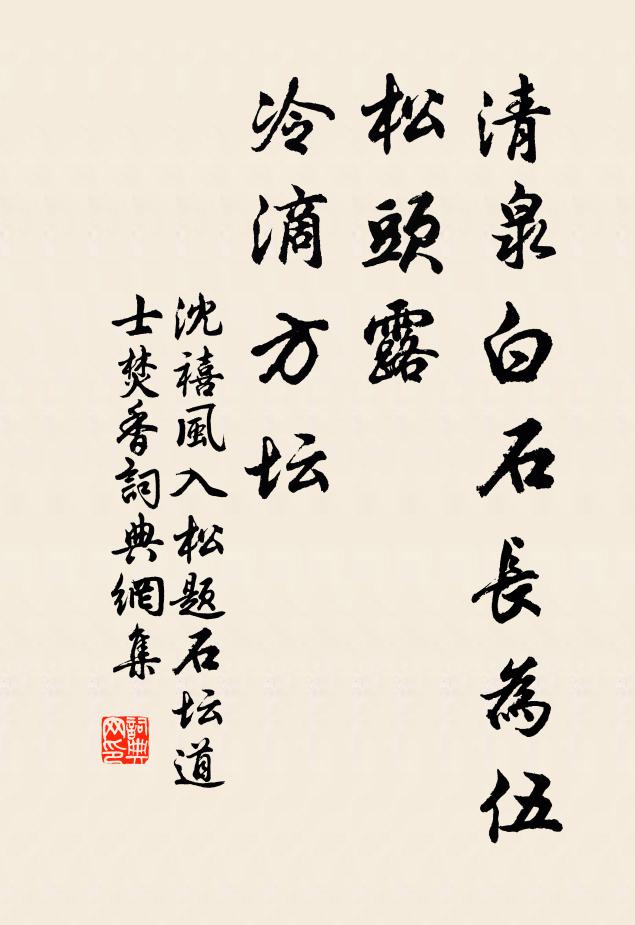 清泉白石長為伍
松頭露
冷滴方坛
沈禧風入松题石坛道
士焚香詞典網集
詞典网印